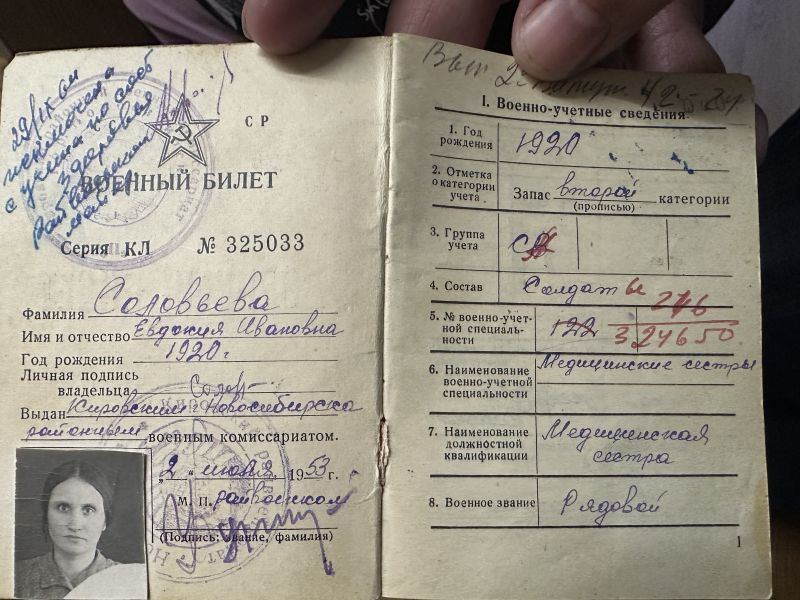 29/IX 64
исключена
с учета по сост
здоровья
райвоенком
майор
СР
ВОЕННЫЙ БИЛЕТ
Серия КЛ № 325033
Фамилия Соловьева
Имя и отчество Евдокия Ивановна
Год рождения 1920 г.
Личная подпись
владельца
Выдан Кировским г. Новосибирска
районным военным комиссариатом.
"2" июля 1953 г.
М. п. райвоенком
(Подпись: звание, фамилия)
I. Военно-учетные сведения
1. Год
рождения
1920
2. Отметка
о категории
учета
Запас второй категории
(прописью)
3. Группа
учета
4. Состав
Солдаты
5. № военно-учет-
ной специаль-
ности
122
246
324650
6. Наименование
военно-учетной
специальности
Медицинские сестры
7. Наименование
должностной
квалификации
Медицинская
сестра
8. Военное звание
Рядовой
1